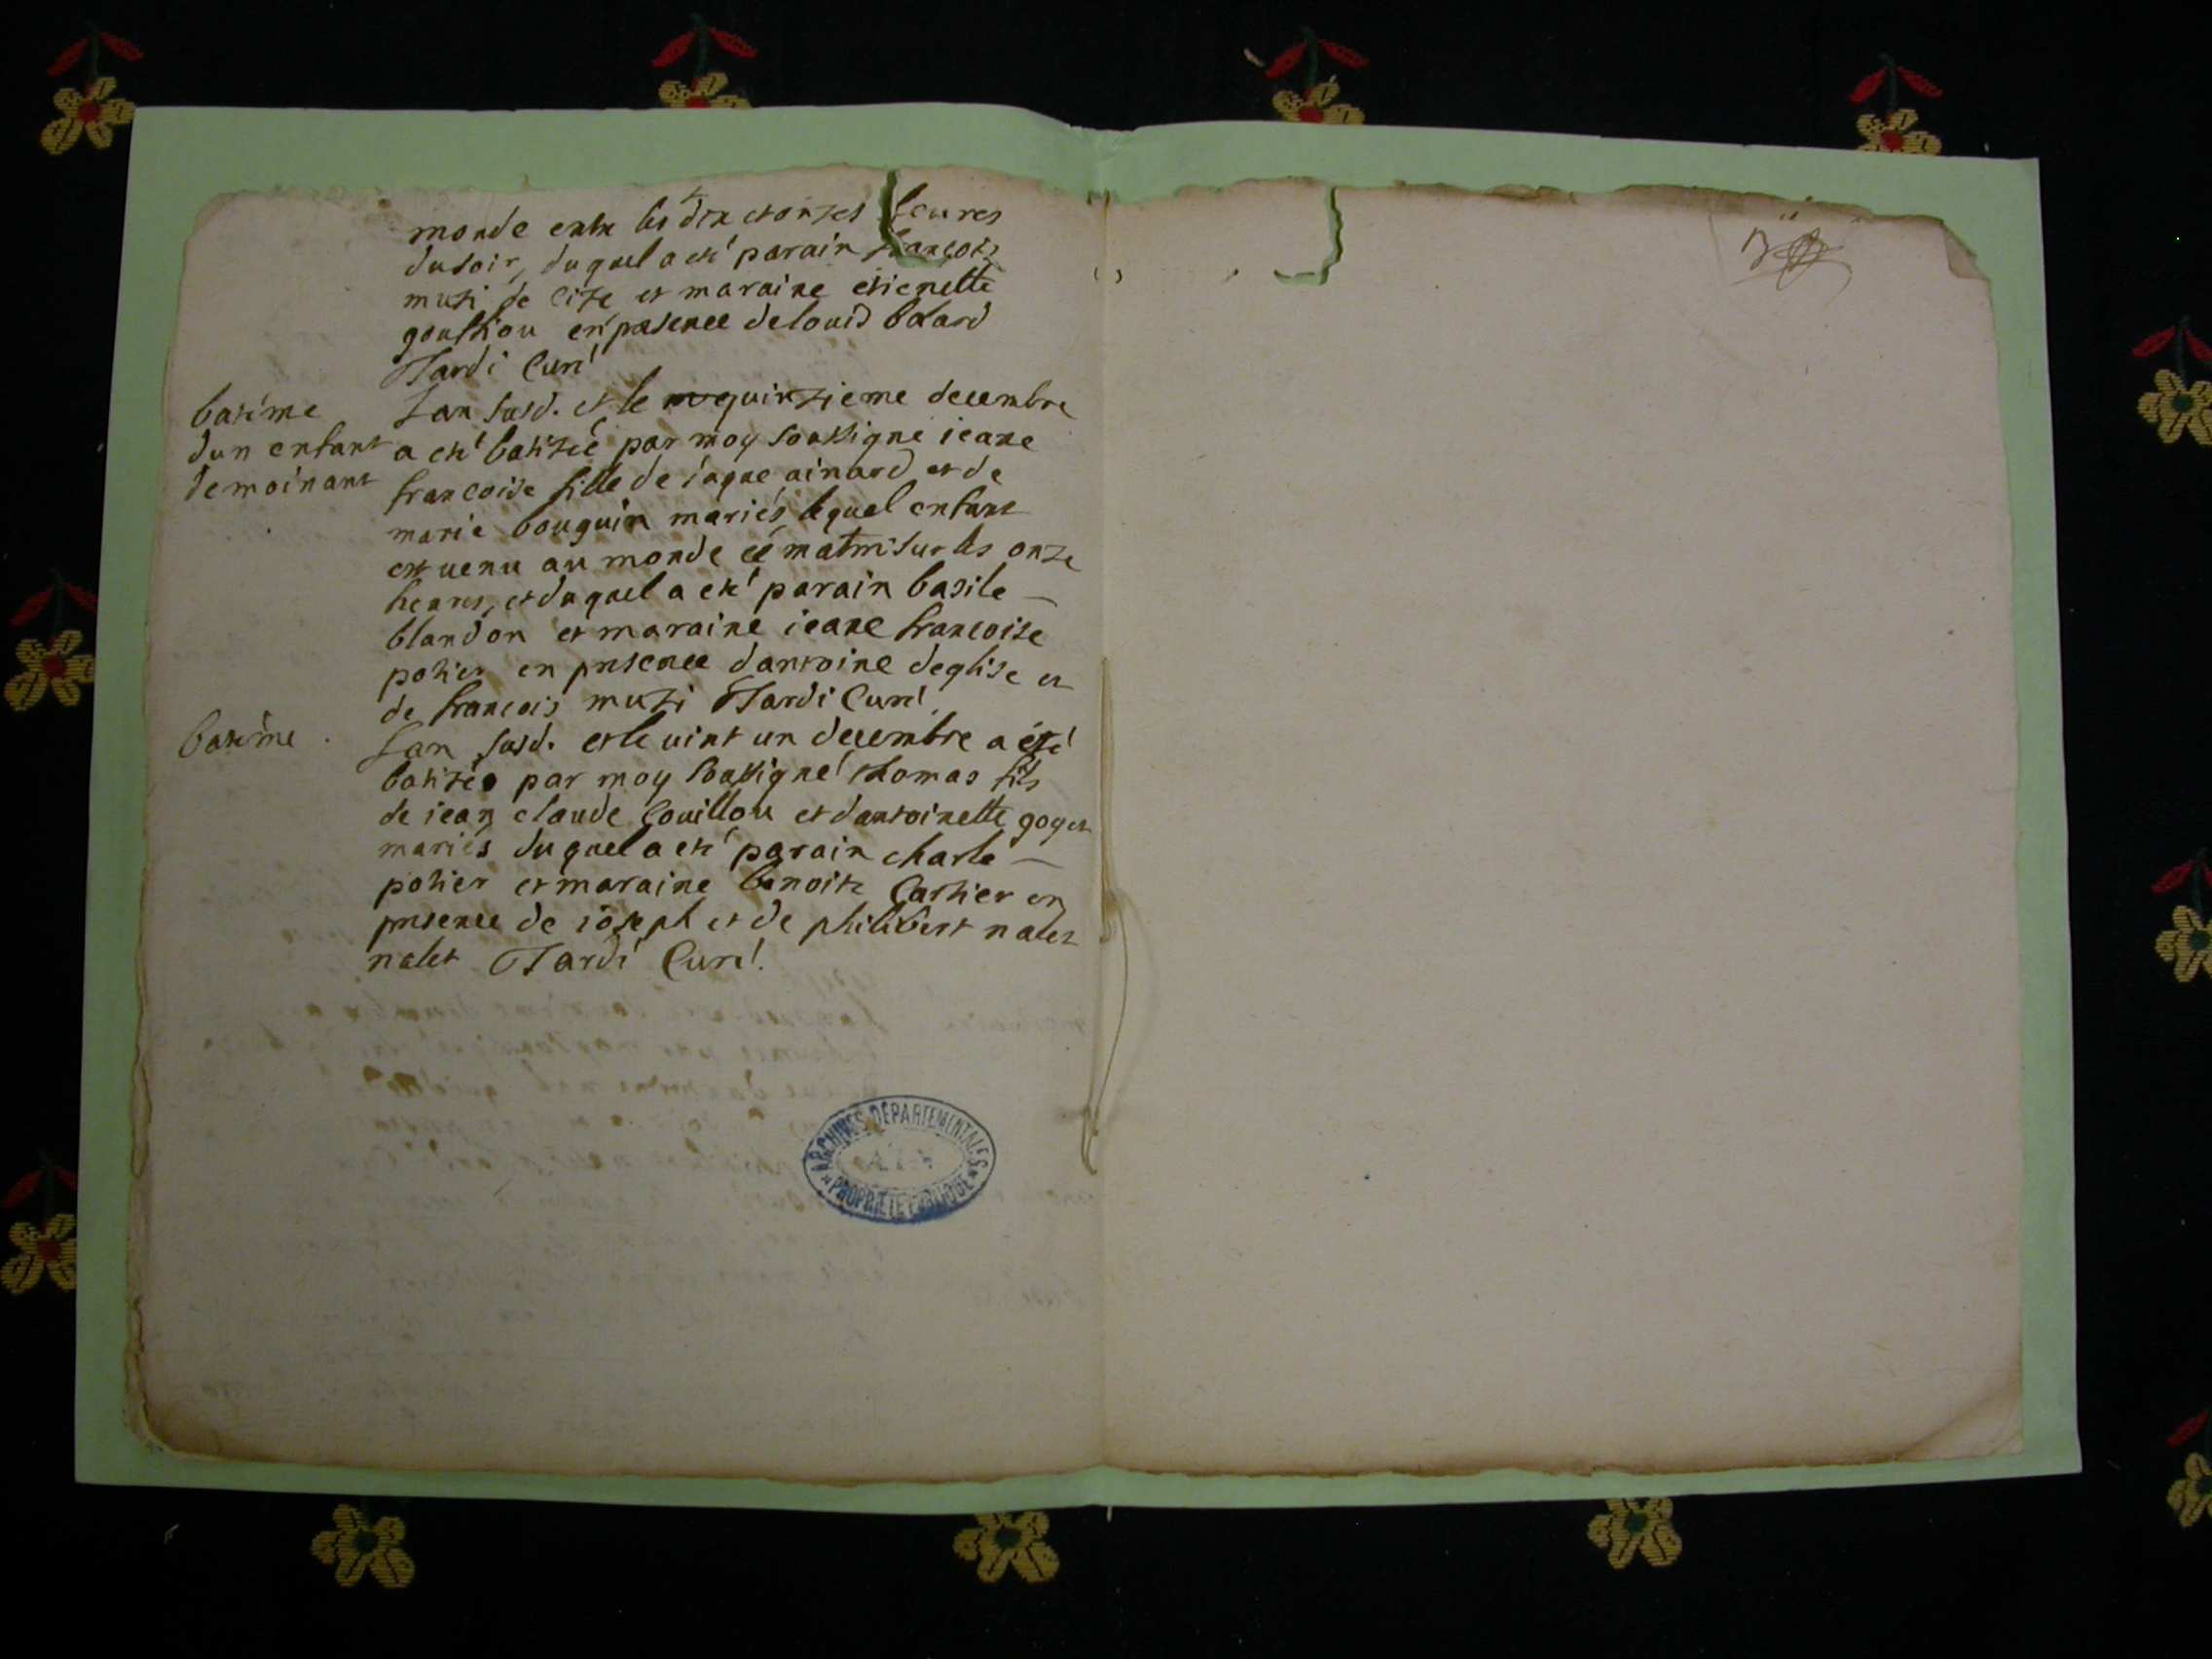 monde entre les dix et onzes heures
du soir, duquel a eté parain françois
muti de cize et maraine etienette
gouthiou en presence de louis bolard
Tardi Curé
batême
d'un enfant
de moinant
Lan susd. et le quinzieme decembre
a eté batizée par moy soussigné ieane
francoise fille de iaque ainard et de
marie bouquin mariés, lequel enfant
est venu au monde ce matin sur les onze
heures, et duquel a eté parain basile
blandon et maraine ieane francoise
potier en presence dantoine deglise et
de francois muti Tardi Curé
batême
Lan susd. et le vint un decembre a eté
batizé par moy soussigné thomas fils
de iean claude Couillou et dantoinette goyet
mariés duquel a eté parain charle
potier et maraine benoite Cartier en
presence de ioseph et de philibert nalet
nalet Tardi Curé.
ARCHIVES DEPARTEMENTALES
AIN
PROPRIETE PUBLIQUE